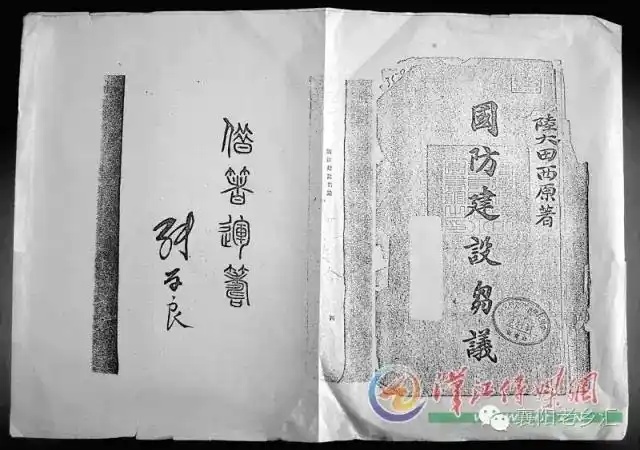 陸大田西原著
國防建設芻議
國防建設芻議
四
借箸運籌
張学良
漢江传媒網
襄阳老乡汇